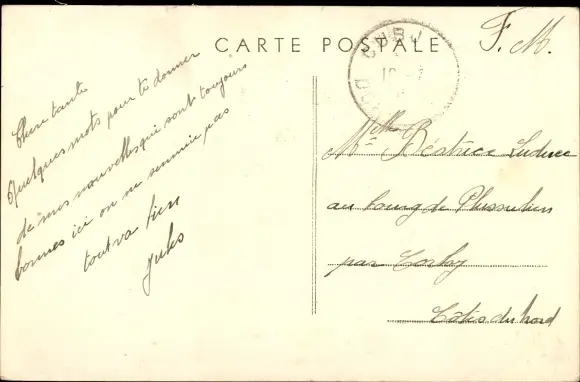 CARTE POSTALE
F. M.
Chere tante
Quelques mots pour te donner
de mes nouvelles qui sont toujours
bonnes ici on ne s'ennuie pas
tout va bien
Jules
Melle Béatrice Leduc
au bourg de Plussulien
par Corlay
Côtes du Nord